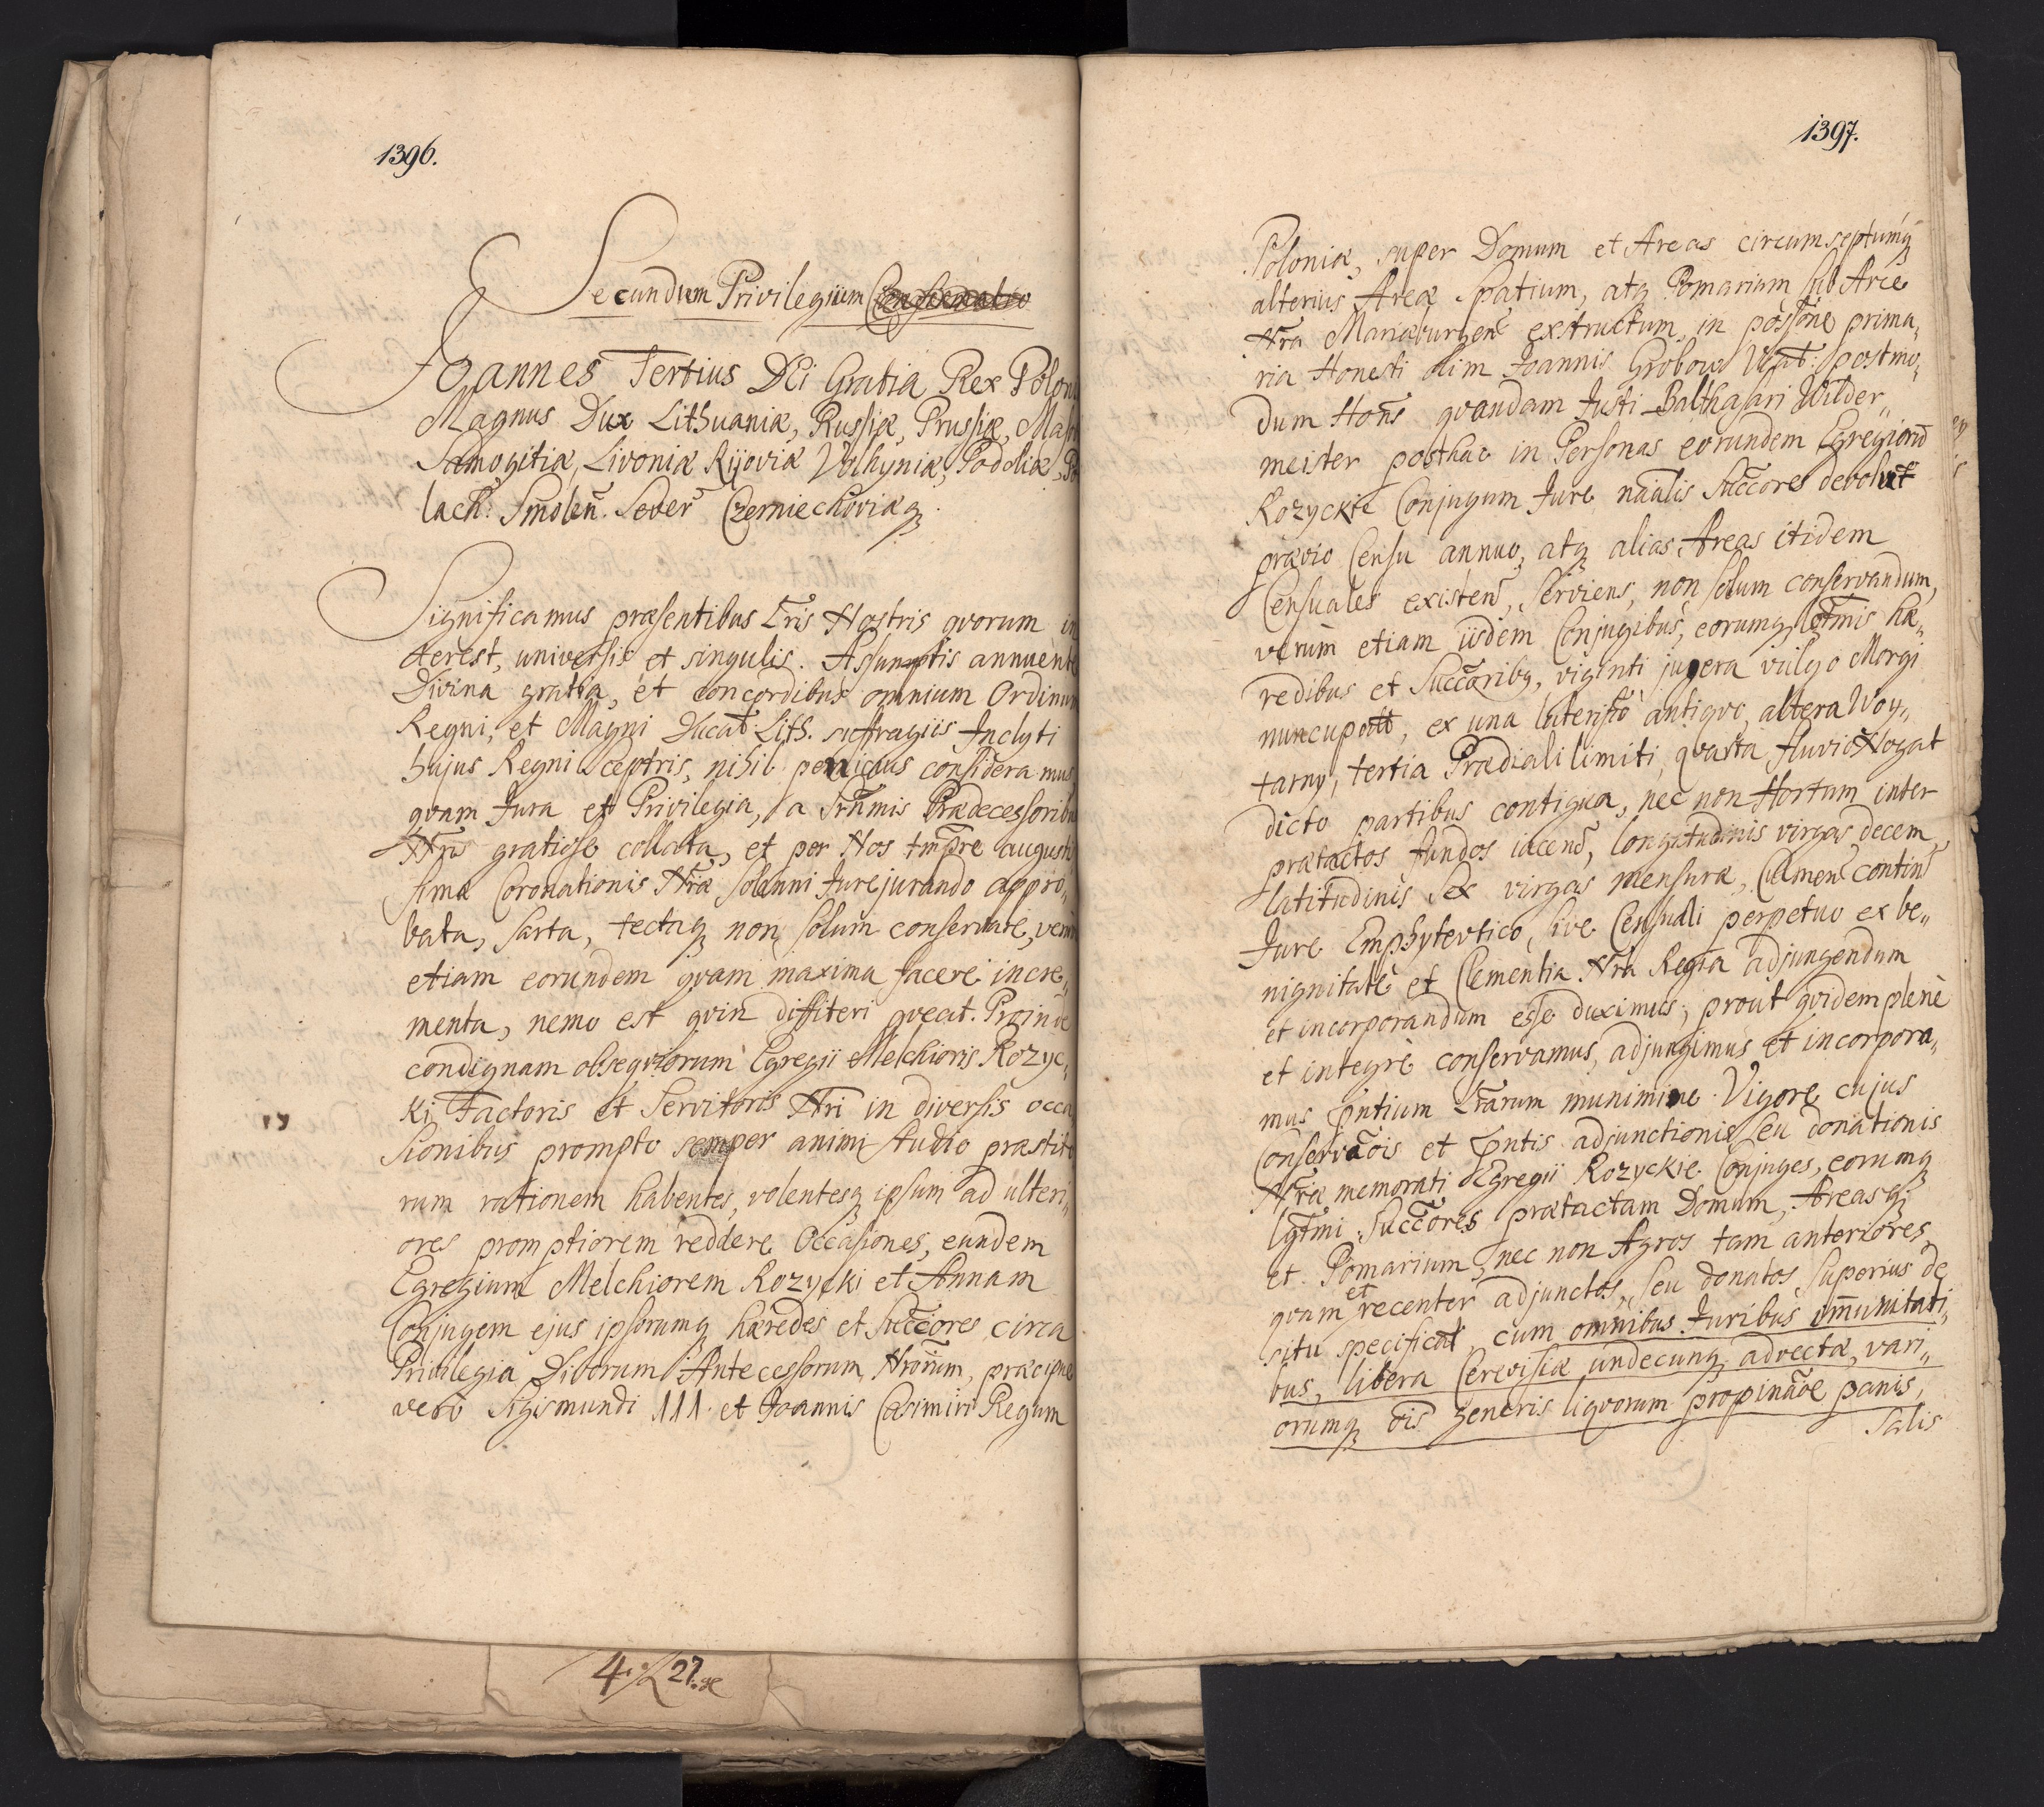 1396.
Secundum Privilegium
Joannes Tertius DEi Gratia Rex Polon
Magnus Dux Lithuaniæ, Russiæ, Prussiæ, Maso
Samogitiæ, Livoniæ Kijoviæ Volhyniæ, Podoliæ, Po
lach: Smolen̄. Sever̄ Czerniechoviæq
Significamus præsentibus Lr̄is Nostris qvorum in
terest, universis et singulis. Assumptis annuente
Divina gratia, et concordibus omnium Ordinum
Regni, et Magni Ducat: Lith. suffragiis Inclyti
hujus Regni Sceptris, nihil penicius considera mus
qvam Jura et Privilegia, a Srn̄mis Prædecessoribu
Nr̄is gratiose collata, et per Nos tmp̄re augusti
simæ Coronationis Nr̄æ solenni Jurejurando appro„
bata, sarta, tectaq non solum conservare, verum
etiam eorundem qvam maxima facere incre„
menta, nemo est qvin diffiteri qveat. Proinde
condignam obseqviorum Egregii Melchioris Rozyc„
ki Factoris et Servitoris Nr̄i in diversis occa
sionibus prompto semper animi studio præstito
rum rationem habentes, volentesq ipsum ad ulteri„
ores promptiorem reddere Occasiones, eundem
Egregium Melchiorem Rozycki et Annam
Conjugem ejus ipsorumq hæredes et Succ̄ores circa
Privilegia Divorum Antecessorum Nr̄orum, præcipue
vero Sigismundi III. et Joannis Casimiri Regum
4. 27.
1397.
Poloniæ, super Domum et Areas circumseptumq
alterius Areæ spatium, atq Pomarium sub Arce
Nr̄a Mariæburgen̄ exstructum, in poss̄one prima„
ria Honesti olim Joannis Grobow postmo„
dum Hon̄s qvondam Justi Balthasari Wilder„
meister posthac in Personas eorundem Egregiorū
Rozyckie Conjugum Jure nāalis Succ̄ores devolut
prævio Censu annuo, atq alias Areas itidem
Censuales existen̄, serviens, non solum conservandum,
verum etiam iisdem Conjugibus, eorumq lgtm̄is hæ„
redibus et Succ̄oribq, viginti jugera vulgo Morgi
nuncupatt, ex una antiqvo altera Woy„
tarny, tertia Prædiali limiti, qvarta fluvio Nogat
dicto partibus contigua, nec non Hortum inter
prætactos fundos iacen̄, longitudinis virgas decem,
latitudinis sex virgas mensuræ, Culmen̄ contin̄
Jure Emphyteutico, sive Censuali perpetuo ex be„
nignitate et Clementia Nr̄a Regia adjungendum
et incorporandum esse duximus, prout qvidem plene
et integre conservamus, adjungimus et incorpora„
mus p̄ntium Lr̄arum munimine. Vigore cujus
Conservāois et p̄ntis adjunctionis seu donationis
Nr̄æ memorati Egregii Rozyckie Conjuges, eorumq
lgtm̄i Succ̄ores prætactam Domum, Areasq
et Pomarium, nec non Agros tam anteriores
qvam et recenter adjunctos, seu donatos superius de
situ specificat, cum omnibus Juribus im̄unitati„
bus, libera Cerevisiæ undecunq advectæ, vari„
orumq ōis generis liqvorum propināoe panis,
salis